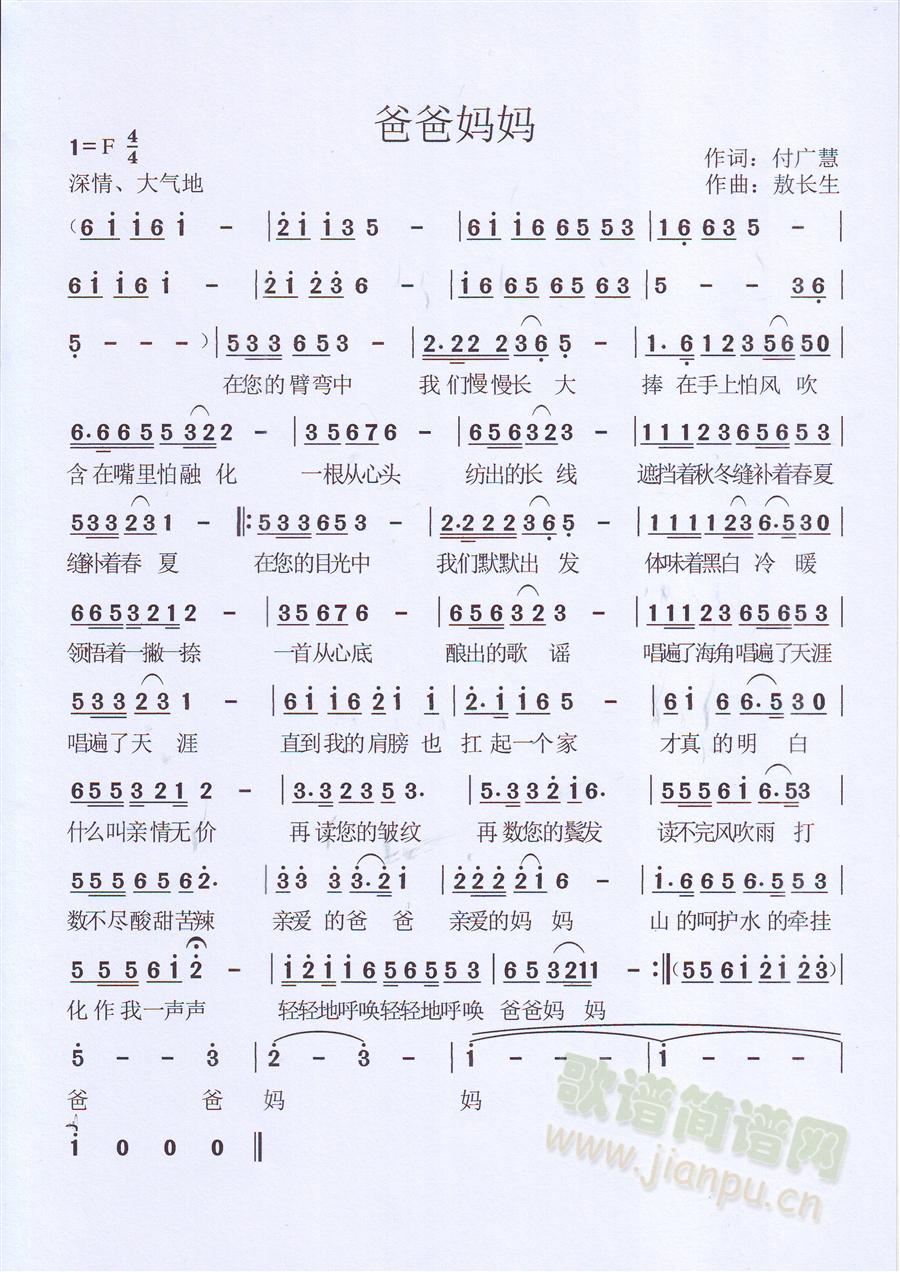 爸爸妈妈
1=F 4/4
作词：付广慧
深情、大气地
作曲：敖长生
(6i i6 i - |2i i35 - |6i i6 6 5 5 5 3 |1663 5 - |
6i i6 i - |2i 236 - |i665 6565 |5 - - 36|
5 - - -)|533 653 - |2.22 2 236 5 - |1.6 123 5650|
在您的臂弯中 我们慢慢长大 捧在手上怕风吹
6.665 5322 - |35676 - |656323 - |11123656553|
含在嘴里怕融化 一根从心头 纺出的长线 遮挡着秋冬缝补着春夏
533231 - ‖:533653 - |2.222365 - |1111236.530|
缝补着春夏 在您的目光中 我们默默出发 体味着黑白冷暖
66532 12 - |35676 - |656323 - |11123656553|
领悟着一撇一捺 一首从心底 酿出的歌谣 唱遍了海角唱遍了天涯
533231 - |6i i6 2i i |2.i i65 - |6i 66.530|
唱遍了天涯 直到我的肩膀也 扛起一个家 才真的明白
65533212 - |3.32353. |5.332i6. |5556i6.53|
什么叫亲情无价 再读您的皱纹 再数您的鬓发 读不完风吹雨打
5556562. |33 33.2i |2222i6 - |i.6656.555|
数不尽酸甜苦辣 亲爱的爸爸 亲爱的妈妈 山的呵护水的牵挂
55556i2 - |i2ii656553|653211 - :‖(556i2i23)|
化作我一声声 轻轻地呼唤轻轻地呼唤 爸爸妈妈
5 - - 3 |2 - 3 - |i - - - |i - - - |
爸 爸 妈 妈
i 0 0 0 ‖
歌谱简谱网
www.jianpu.cn